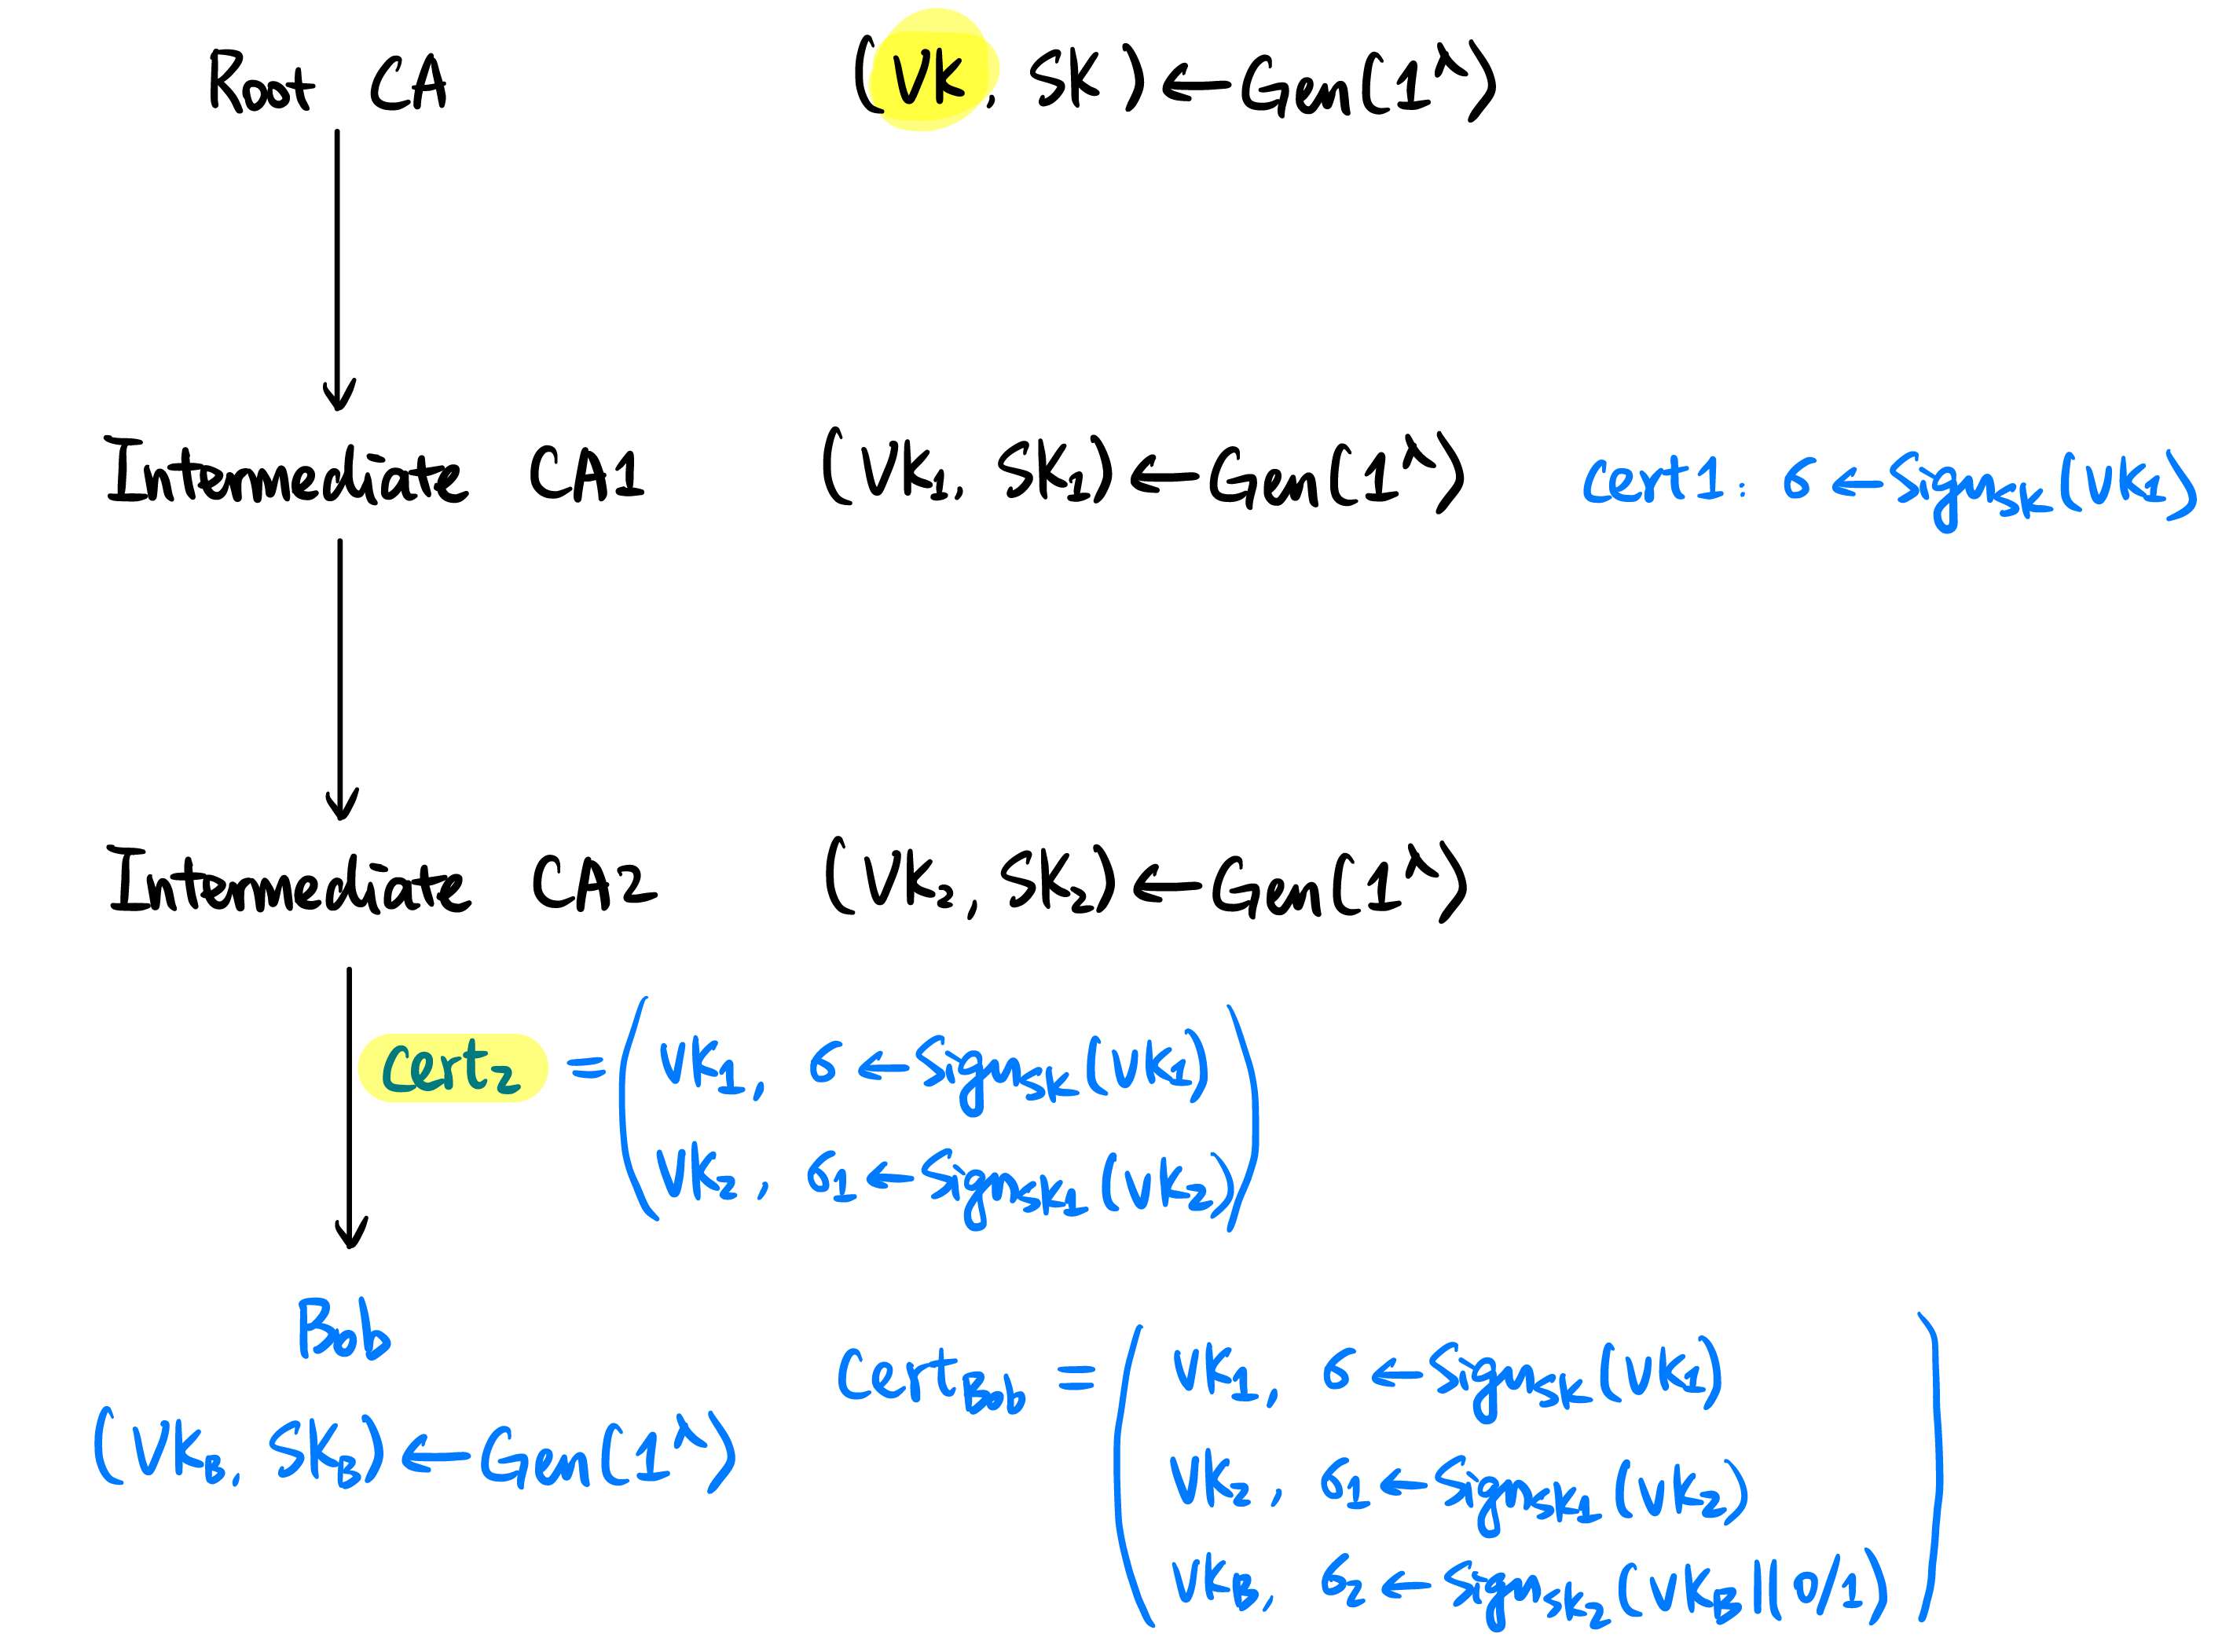 Root CA
(VK, SK) ← Gen(1^λ)
Intermediate CA1
(VK₁, SK₁) ← Gen(1^λ)
cert1: σ ← Sign_SK(VK₁)
Intermediate CA2
(VK₂, SK₂) ← Gen(1^λ)
Cert₂ = (VK₁, σ ← Sign_SK(VK₁)
VK₂, σ₁ ← Sign_SK₁(VK₂))
Bob
(VK_B, SK_B) ← Gen(1^λ)
Cert_Bob = (VK₁, σ ← Sign_SK(VK₁)
VK₂, σ₁ ← Sign_SK₁(VK₂)
VK_B, σ₂ ← Sign_SK₂(VK_B||0/1))